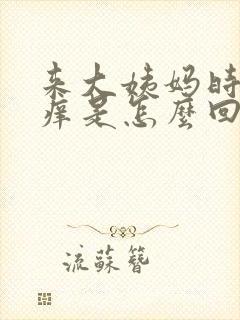 来大姨妈时
痒是怎麼回
流蘇簪